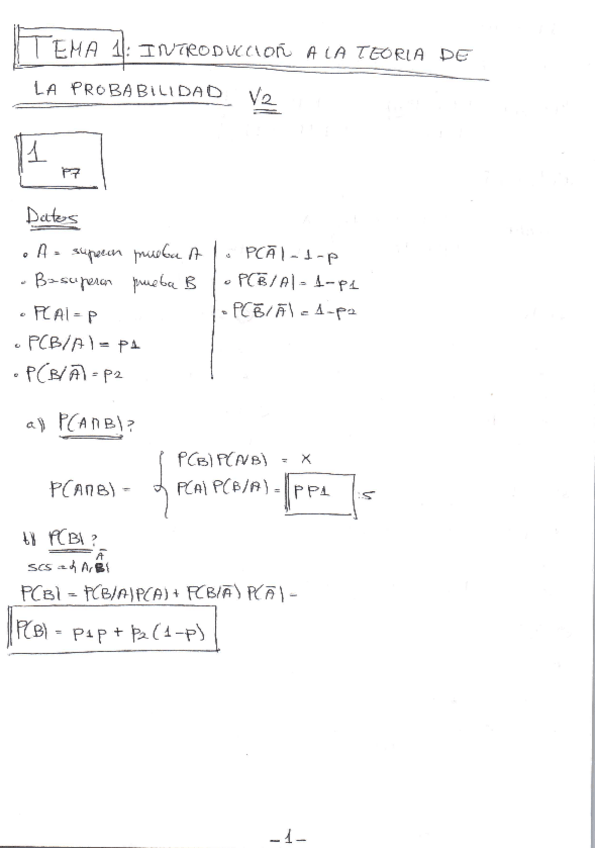 TEMA 1: INTRODUCCION A LA TEORIA DE
LA PROBABILIDAD V2
1
P7
Datos
• A = superar prueba A
• B = superar prueba B
• P(A) = p
• P(B/A) = p1
• P(B/Ā) = p2
• P(Ā) = 1-p
• P(B̄/A) = 1-p1
• P(B̄/Ā) = 1-p2
a) P(A∩B)?
P(A∩B) = {
P(B) P(A/B) = X
P(A) P(B/A) = pp1
b) P(B)?
SCS = {A, Ā}
P(B) = P(B/A)P(A) + P(B/Ā) P(Ā) =
P(B) = p1p + p2(1-p)
-1-